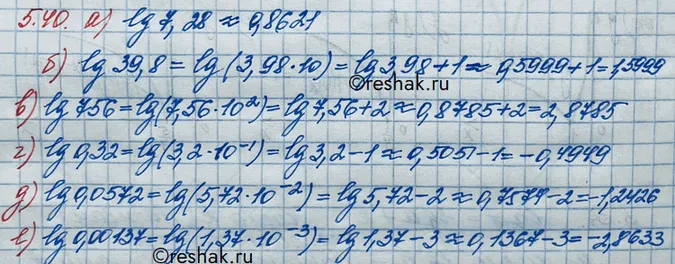 5.40. а) lg 7,28 ≈ 0,8621
б) lg 39,8 = lg (3,98·10) = lg 3,98 + 1 ≈ 0,5999 + 1 = 1,5999
©reshak.ru
в) lg 756 = lg (7,56·10²) = lg 7,56 + 2 ≈ 0,8785 + 2 = 2,8785
г) lg 0,32 = lg (3,2·10⁻¹) = lg 3,2 - 1 ≈ 0,5051 - 1 = -0,4949
д) lg 0,0572 = lg (5,72·10⁻²) = lg 5,72 - 2 ≈ 0,7574 - 2 = -1,2426
е) lg 0,00137 = lg (1,37·10⁻³) = lg 1,37 - 3 ≈ 0,1367 - 3 = -2,8633
©reshak.ru